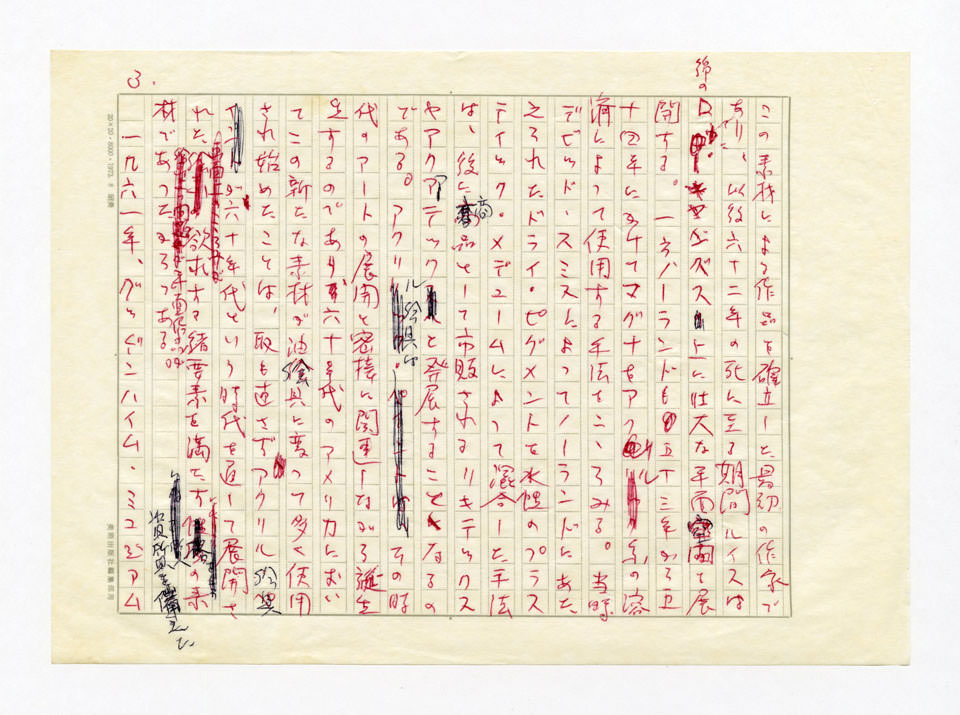 この素材による作品を確立した最初の作家で
あり、以後六十二年の死に至る期間ルイスは
綿の
上に壮大な平面を展
開する。一方ノーランドも五十三年から五
十四年にかけてマグナをアクリル系の溶
済によって使用する手法をこころみる。当時
デビッド・スミスによってノーランドにあた
えられたドライ・ピグメントを水性のプラス
ティック・メデュームによって混合した手法
は、後に商品として市販されるリキテックス
やアクアテックと発展することになるの
である。アクリル絵具は、その時
代のアートの展開と密接に関連しながら誕生
をするのであり、六十年代のアメリカにおい
てこの新たな素材が油絵具に変って多く使用
され始めたことは、取も直さずアクリル絵具
が六十年代という時代を通して展開さ
れた 平面作品の 欲求する諸要素を満たす の素
資質を備えた
材であったようである。
一九六一年、グッゲンハイム・ミュジアム
3.
20×20